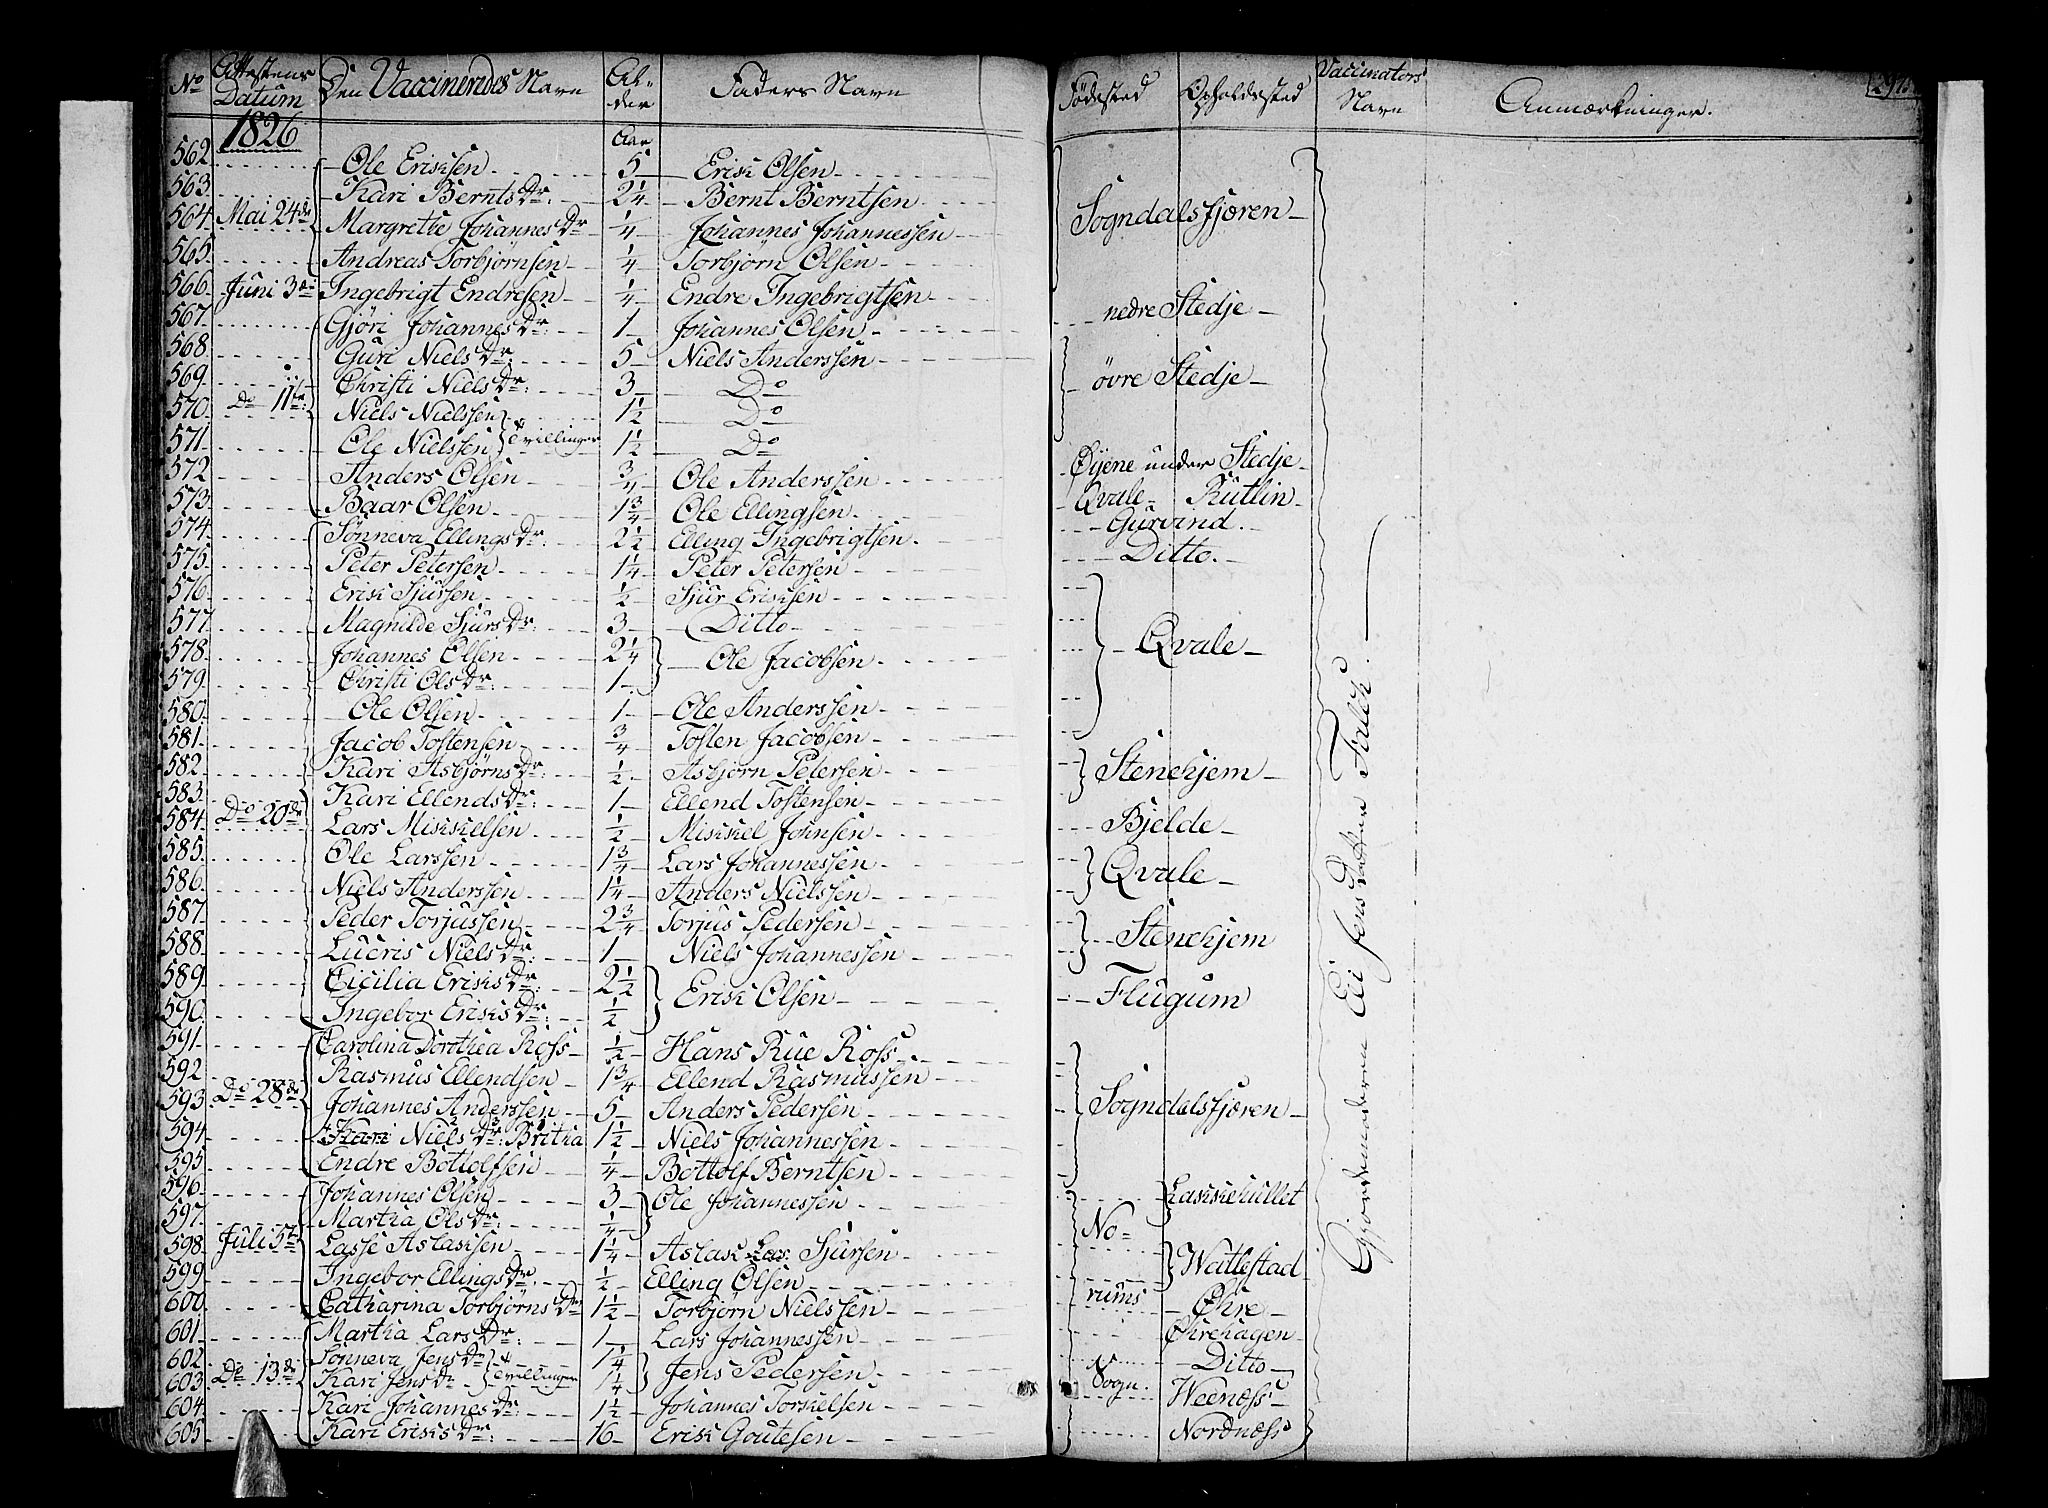 No Attestens Datum Den Vaccineredes Navn Alder Faders Navn Fødested Opholdssted Vaccinators Navn Anmærkninger.
1826 Aar
562 Ole Erichsen 5 Erich Olsen
563 Kari Bernts Dr: 2 1/4 Bernt Berntsen
564 Mai 24de Margrethe Johannes Dr 1/4 Johannes Johannessen Sogndalsfjæren
565 Andreas Torbjørnsen 1/4 Torbjørn Olsen
566 Juni 3die Ingebrigt Endresen 1/4 Endre Ingebrigtsen
567 Gjøri Johannes Dr: 1 Johannes Olsen nedre Stedje
568 Guri Niels Dr: 5 Niels Anderssen
569 Christi Niels Dr: 3 Do øvre Stedje
570 Do 11te: Niels Nielssen } Tvillinger 1 1/2 Do
571 Ole Nielssen 1 1/2 Do
572 Anders Olsen 3/4 Ole Anderssen Øyene under Stedje
573 Baar Olsen 1 3/4 Ole Ellingsen Qvale Rutlin
574 Sønneva Ellings Dr: 2 1/2 Elling Ingebrigtsen Gurvind.
575 Peter Petersen 1 1/4 Peter Petersen Ditto.
576 Erich Sjursen 1/2 Sjur Erichsen
577 Magnilde Sjurs Dr: 3 Ditto
578 Johannes Olsen 2 1/4 } Ole Jacobsen Qvale
579 Christi Ols Dr: 1
580 Ole Olsen 1 Ole Anderssen
581 Jacob Tostensen 3/4 Tosten Jacobsen
582 Kari Asbjørns Dr: 1/2 Asbjørn Petersen Stenehjem
583 Kari Ellends Dr: 1 Ellend Tostensen
584 Do 20de Lars Mickelsen 1/2 Mickel Johnsen Bjelde
585 Ole Larssen 1 3/4 Lars Johannessen
586 Niels Anderssen 1 1/4 Anders Nielssen Qvale
587 Peder Torjussen 2 3/4 Torjus Pedersen
588 Lucris Niels Dr: 1 Niels Johannessen Stenehjem
589 Cicilia Erichs Dr: 2 1/2 } Erich Olsen Flugum
590 Ingebor Erichs Dr: 1/2
591 Carolina Dorothea Ross 1/2 Hans Rue Ross
592 Rasmus Ellendsen 1 3/4 Ellend Rasmussen
593 Do 28de Johannes Anderssen 5 Anders Pedersen Sogndalsfjæren
594 Kari Niels Dr: Britha 1 1/2 Niels Johannessen
595 Endre Bottolfsen 1/4 Bottolf Berntsen
596 Johannes Olsen 3 } Ole Johannessen
597 Martha Ols Dr: 1/4 No-
598 Juli 5te Lasse Aslaksen 1 1/4 Aslak Sjursen
599 Ingebor Ellings Dr: 1/2 Elling Olsen Wattestad
600 Catharina Torbjørns Dr 1 1/2 Torbjørn Nielssen rums Øhre
601 Martha Lars Dr: 1 Lars Johannessen Øhrehagen
602 Sønneva Jens Dr } Tvillinger 1 1/4 } Jens Pedersen Ditto
603 Do 13de Kari Jens Dr 1 1/4 Sogn.
604 Kari Johannes Dr: 1 1/2 Johannes Torkelsen
605 Kari Erichs Dr: 16 Erich Goutesen Nordnæss
Gjordemoderen Eli Jens Datter